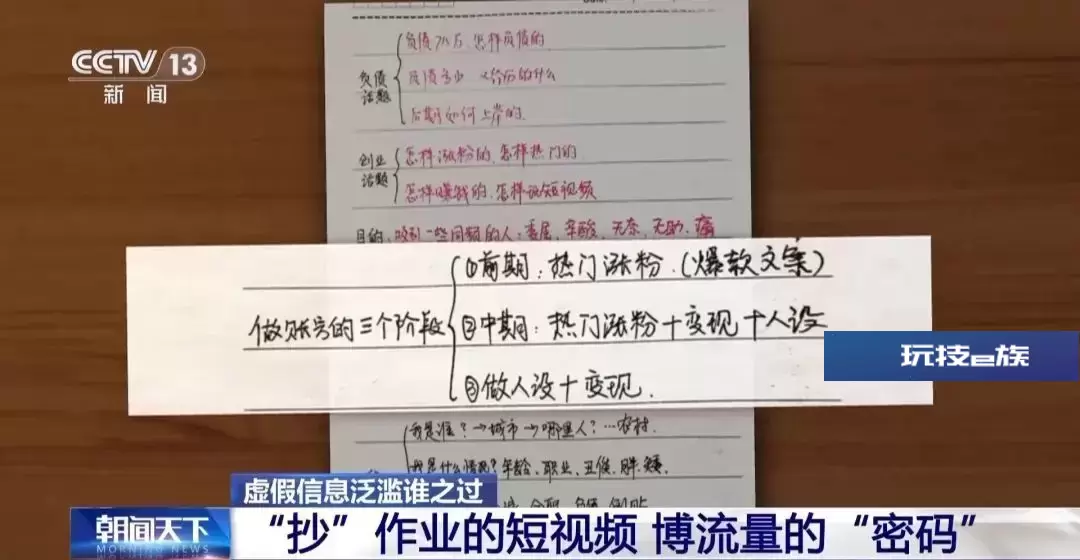 CCTV 13
新闻
负债话题
负债75万、怎样负债的
后期如何上岸的
创业话题
怎样涨粉的、怎样热门的
怎样赚钱的、怎样玩短视频
目的:吸引一些同频的人:委屈、辛酸、无奈、无助、痛
做账号的三个阶段
①前期:热门涨粉.(爆款文案)
②中期:热门涨粉+变现+人设
③做人设+变现.
玩技e族
我是谁?→城市→哪里人?…农村.
我是什么情况?年龄、职业、丑俊、胖、矮、
虚假信息泛滥谁之过
朝闻天下
MORNING NEWS
“抄”作业的短视频 博流量的“密码”